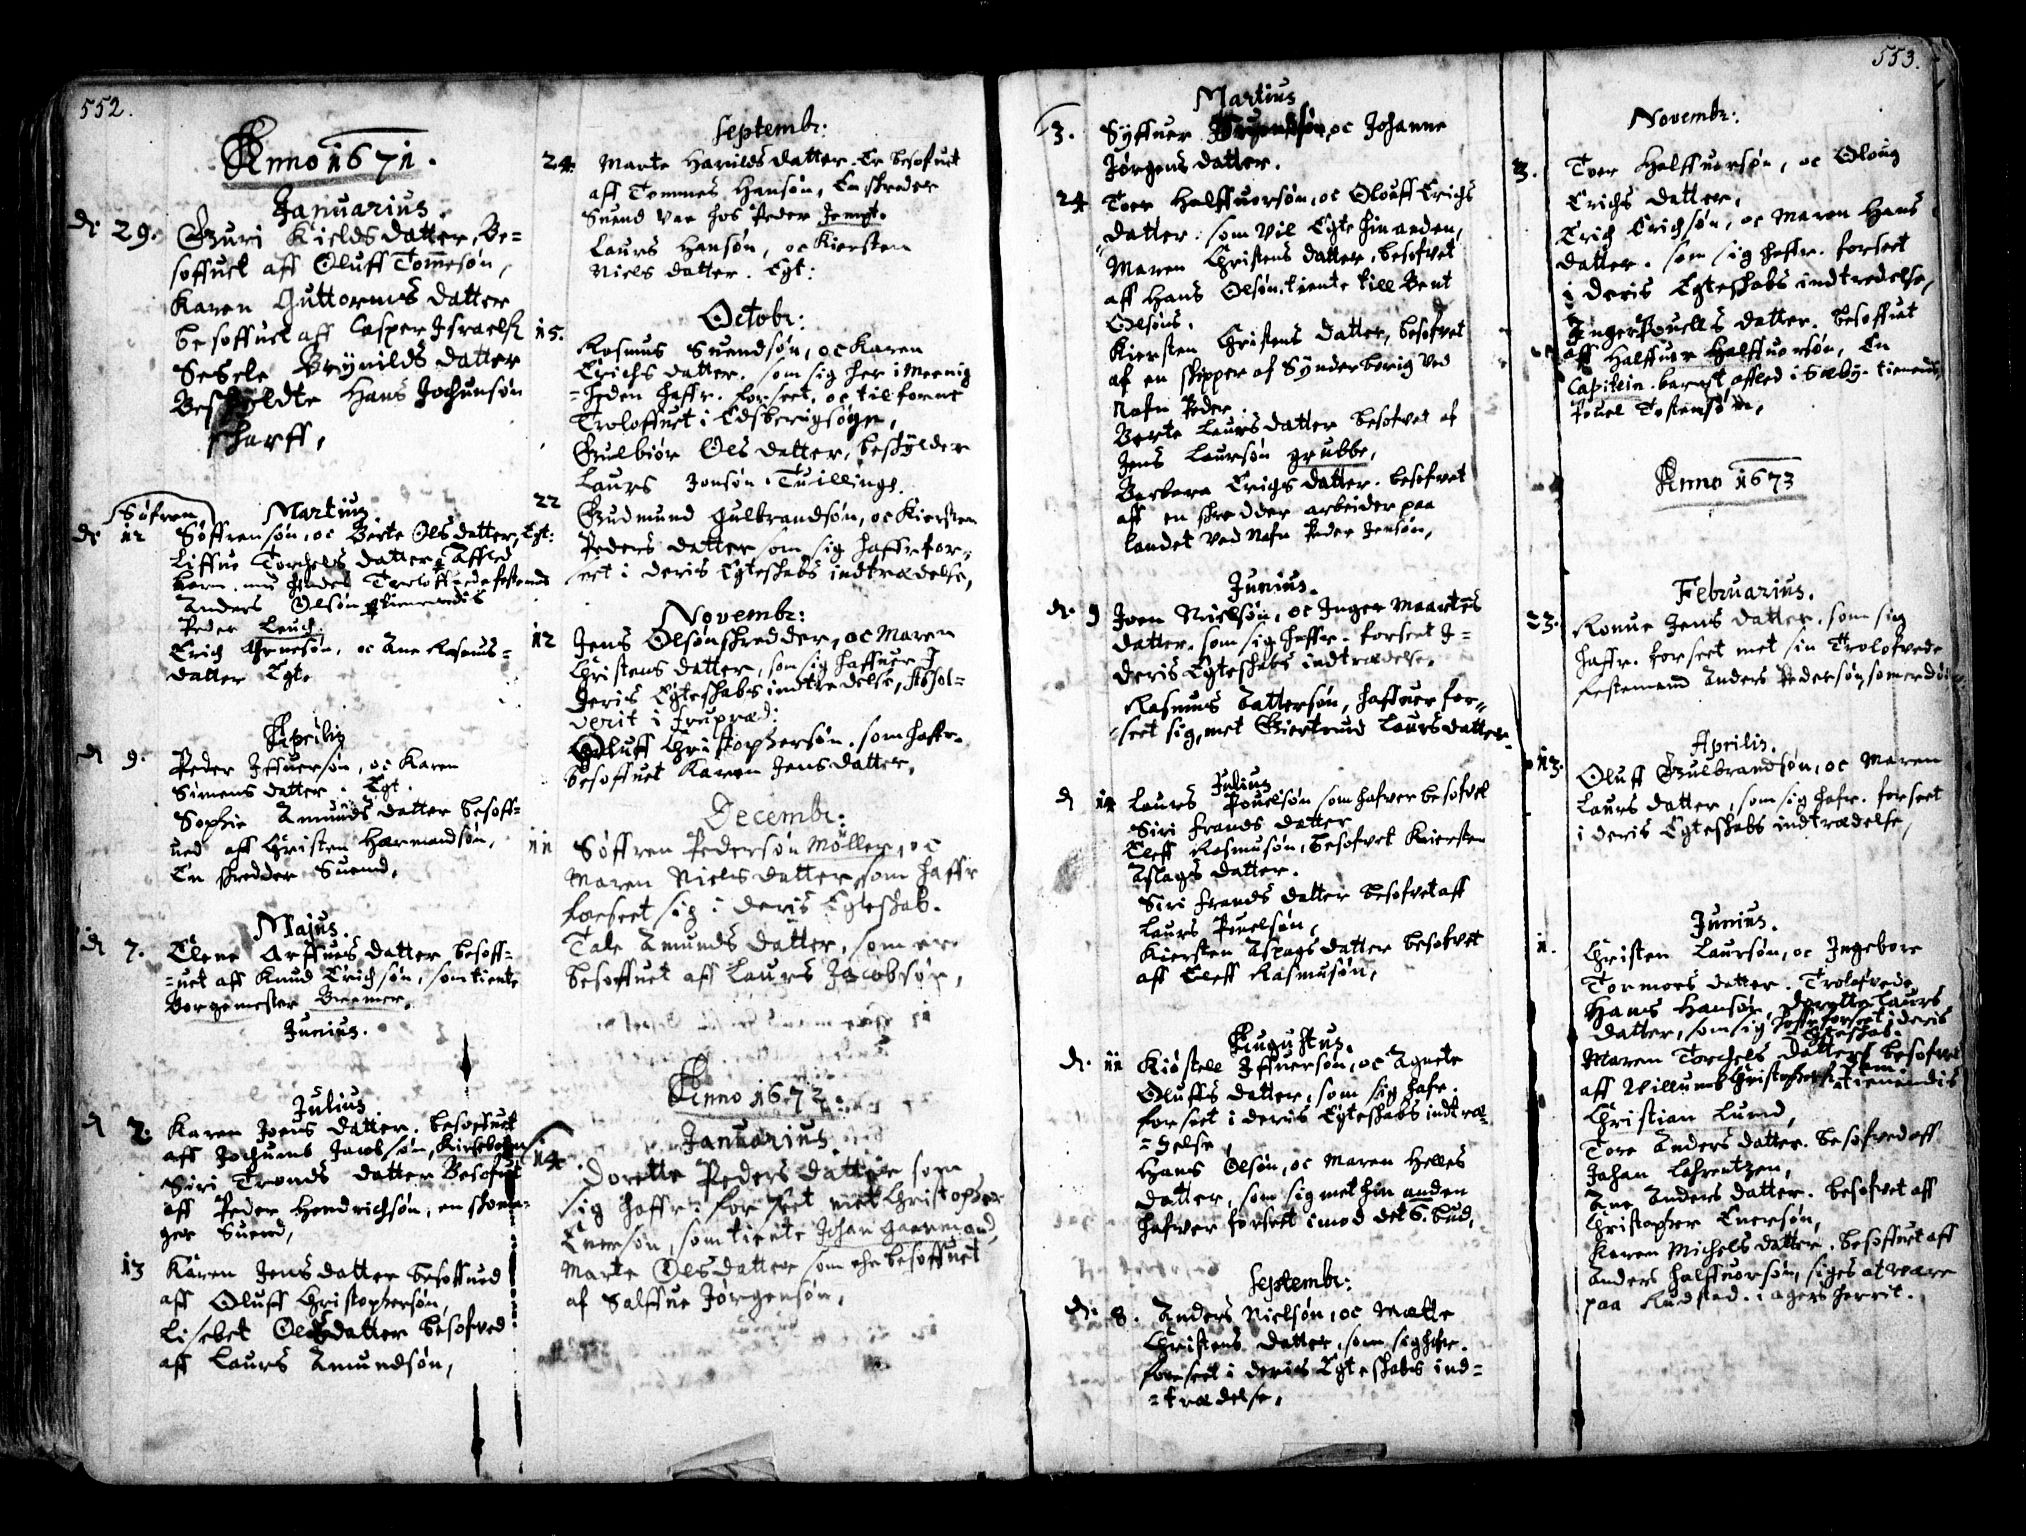 552.
Anno 1671.
Januarius.
d. 29. Guri Kieldsdatter, Be=
soffuet aff Oluff Tommesøn,
Karen Guttormsdatter
besoffuet aff Casper Israels
Sesele Brynildsdatter
Beskyldte Hans Jochumsøn
scharff,
Søfren
Martius
d. 12 Søffrensøn, oc Berte Olsdatter, Egt:
Liffue Torchelsdatter, Affled
barn med hendes Troloffuede festemand
Anders Olsøn tienendis
Peder Leuch.
Erich Arnesøn, oc Ane Rasmus=
datter Egte
Aprilis
d 9. Peder Iffuersøn, oc Karen
Simensdatter. Egt.
Sophie Amundsdatter besoff=
ued aff Christen Harmandsøn,
En skredder Suend,
Majus.
d 7. Elene Arffuesdatter, besoff=
=uet aff Knud Erichsøn, som tiente
Borgemester Bremer,
Junius.
Julius
d 2. Karen Joensdatter. besoffuet
aff Jochum Jacobsøn,
Siri Trondsdatter Besofuet
aff Peder Hendrichsøn, en skoma=
ger Suend,
13 Karen Jensdatter besoffued
aff Oluff Christophersøn,
Lisebet Olsdatter besofved
aff Laurs Amundsøn,
Septembr:
24. Marte Harildsdatter. Er besofuet
aff Tommes Hansøn, En skreder
Suend var hos Peder Jempt.
Laurs Hansøn, oc Kiersten
Nielsdatter. Egt:
Octobr:
15. Rasmus Suendsøn, oc Karen
Erichsdatter. som sig her i Meenig
=heden haffr. forseet, oc tilforne
Troloffuet i Edsbergsogn,
Gulbiør Olsdatter, beskylder
Laurs Jonsøn Tuillings.
22 Gudmund Gulbrandsøn, oc Kiersten
Pedersdatter som sig haffr for=
seet i deris Egteskabs indtrædelse,
Novembr:
12 Jens Olsøn skredder, oc Maren
Christensdatter, som sig haffuer I
deris Egteskabs indtredelse, Absol=
verit i frupræd:
Oluff Christophersøn. som haffr.
besoffuet Karen Jensdatter,
Decembr:
11 Søffren Pedersøn Møller, oc
Maren Nielsdatter, som haffr
forseet sig i deris Egteskab.
Tale Amundsdatter, som er
besoffuet aff Laurs Jacobsøn,
Anno 1672.
Januarius
14. Dorette Pedersdatter som
sig haffr: forseet met Christopher
Enersøn, som tiente Johan Garmand,
Marte Olsdatter som ehr besoffuet
af Salffue Jørgensøn,
553.
Martius
3. Syffuer oc Johanne
Jørgensdatter.
24 Toer Halffuorsøn, oc Olouff Erichs
datter. som vil Egte hinanden,
Maren Christensdatter, besofvet
aff Hans Olsøn. tiente till Bent
Olsøns.
Kiersten Christensdatter, besofvet
af en skipper af Synderborig ved
Nafn Peder
Berte Laursdatter besofvet af
Jens Laursøn grubbe,
Barbara Erichsdatter. besofvet
aff en skredder arbeider paa
landet ved Nafn Peder Jensøn,
Junius.
d. 9 Joen Nielsøn, oc Inger Maartens
datter. som sig haffr. forseet I=
deris Egteskabs indtrædelse,
Rasmus Tattersøn, haffuer for=
seet sig, met Giertrud Laursdatter.
Julius
d 14 Laurs Pouelsøn som hafver besofvet
Siri frandsdatter
Eleff Rasmusøn, besofvet Kiersten
Aslagsdatter.
Siri frandsdatter besofvet aff
Laurs Pouelsøn,
Kiersten Aslagsdatter besofvet
aff Eleff Rasmusøn,
Augustus.
d. 11 Kiøstell Iffuersøn, oc Agnete
Oluffsdatter, som sig hafr.
forseet i deris Egteskabs indtræ=
=delse,
Hans Olsøn, oc Maren Helles
datter, som sig met hin anden
hafver forseet imod det 6. bud,
Septembr:
d. 8. Anders Nielsøn, oc Mette
Christensdatter, som sig hafr.
forseet i deris Egteskabs ind=
=trædelse,
Novembr:
3. Toer Halffuorsøn, oc Oloug
Erichsdatter,
Erich Erichsøn, oc Maren Hans
datter. som sig haffr. forseet
i deris Egteskabs indtredelse,
Inger Pouellsdatter. besoffuet
aff Halffuer Halffuorsøn, En
Capitein. barnet affled i Sæby. tienendis
Pouel Tostensøn,
Anno 1673
Februarius.
23. Ronue Jensdatter, som sig
haffr. forseet met sin Trolofvede
festemand Anders Pedersøn som er død
Aprilis.
13. Oluff Gulbrandsøn, oc Maren
Laursdatter, som sig hafr. forseet
i deris Egteskabs indtrædelse,
Junius.
1. Christen Laursøn, oc Ingebore
Tormoesdatter. Trolofvede
Hans Hansøn, Dorette Laurs
datter, som sig haffr forseet i deris
Egteskab.
Maren Torchelsdatter besofvet
aff Villumb Christophersøn tienendis
Christian Lund,
Tore Andersdatter. besofved aff
Johan Lahrentzen,
Ane Andersdatter. besofvet aff
Christopher Enersøn,
Karen Michelsdatter. besoffuet aff
Anders Halffuorsøn, siges at være
paa Rudstad. i agers herrit.